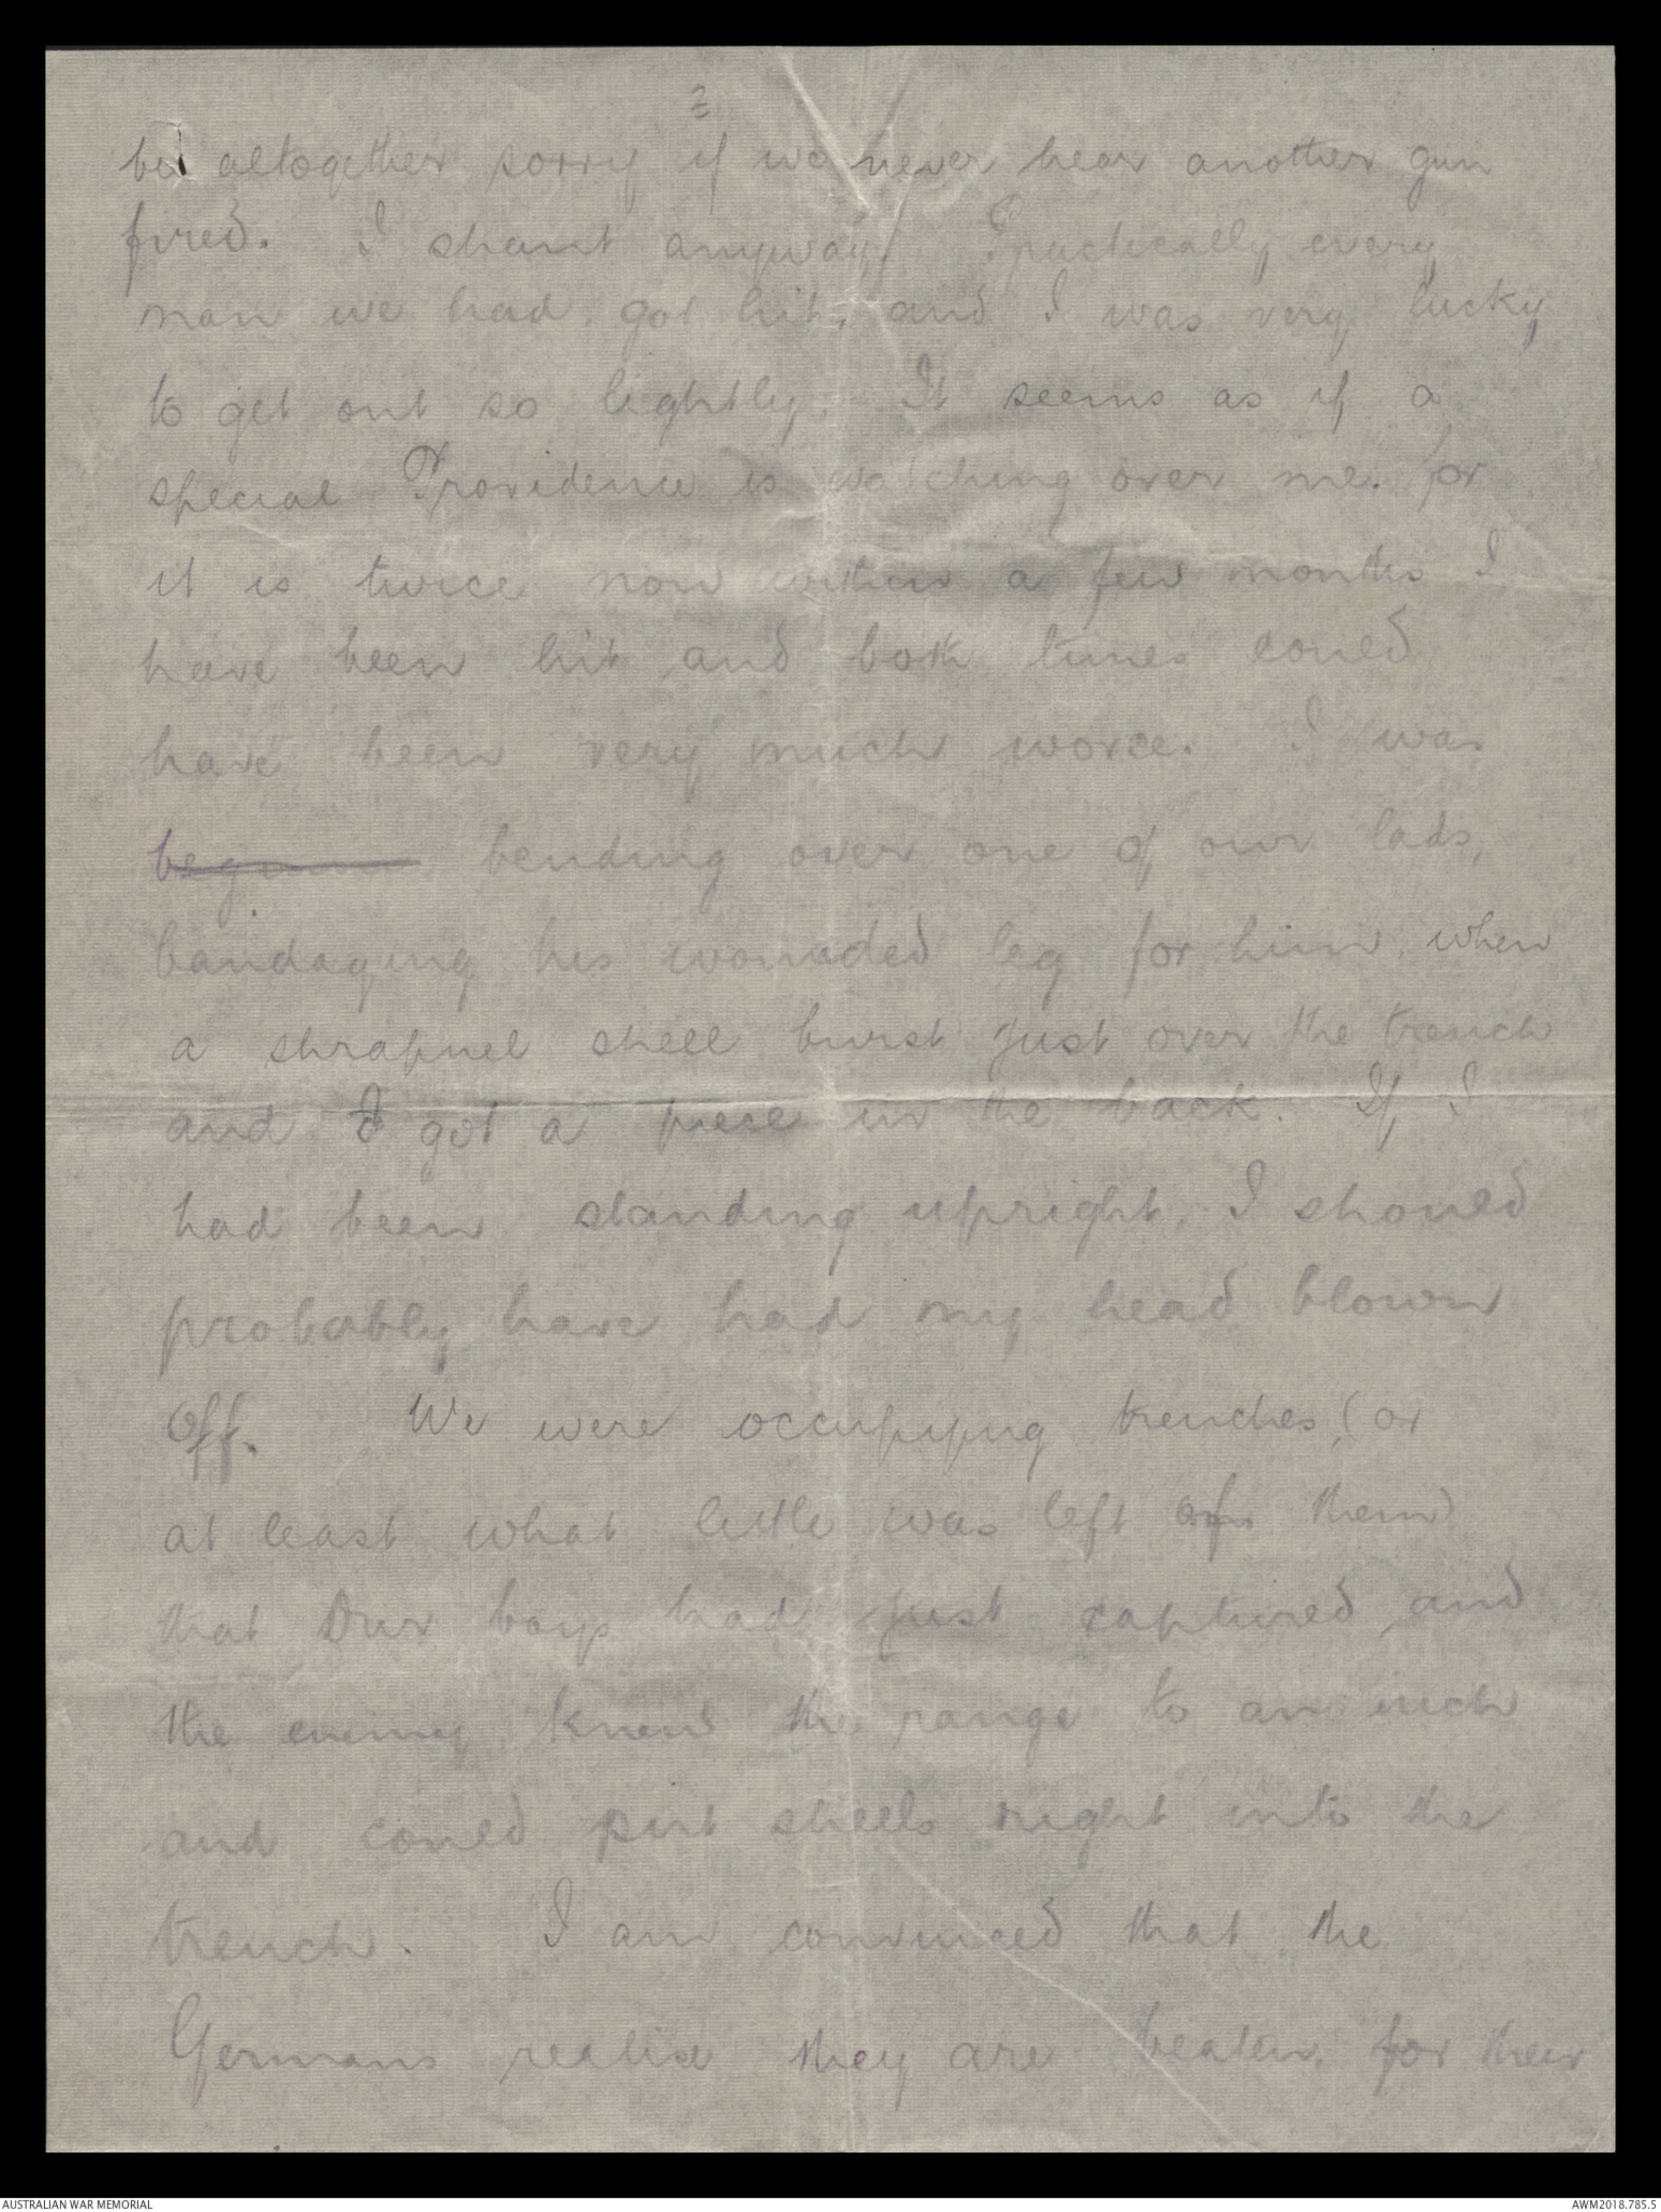 2
be altogether sorry if we never hear another gun
fired. I shant anyway. Practically every
man we had got hit, and I was very lucky
to get out so lightly. It seems as if a
special Providence is watching over me. for
it is twice now within a few months I
have been hit and both times could
have been very much worse. I was
bending over one of our lads,
bandaging his wounded leg for him, when
a shrapnel shell burst just over the trench
and I got a piece in the back. If I
had been standing upright, I should
probably have had my head blown
off. We were occupying trenches, (or
at least what little was left of them)
that our boys had just captured, and
the enemy knew the range to an inch
and could put shells right into the
trench. I am convinced that the
Germans realise they are beaten, for their
AUSTRALIAN WAR MEMORIAL
AWM2018.785.5